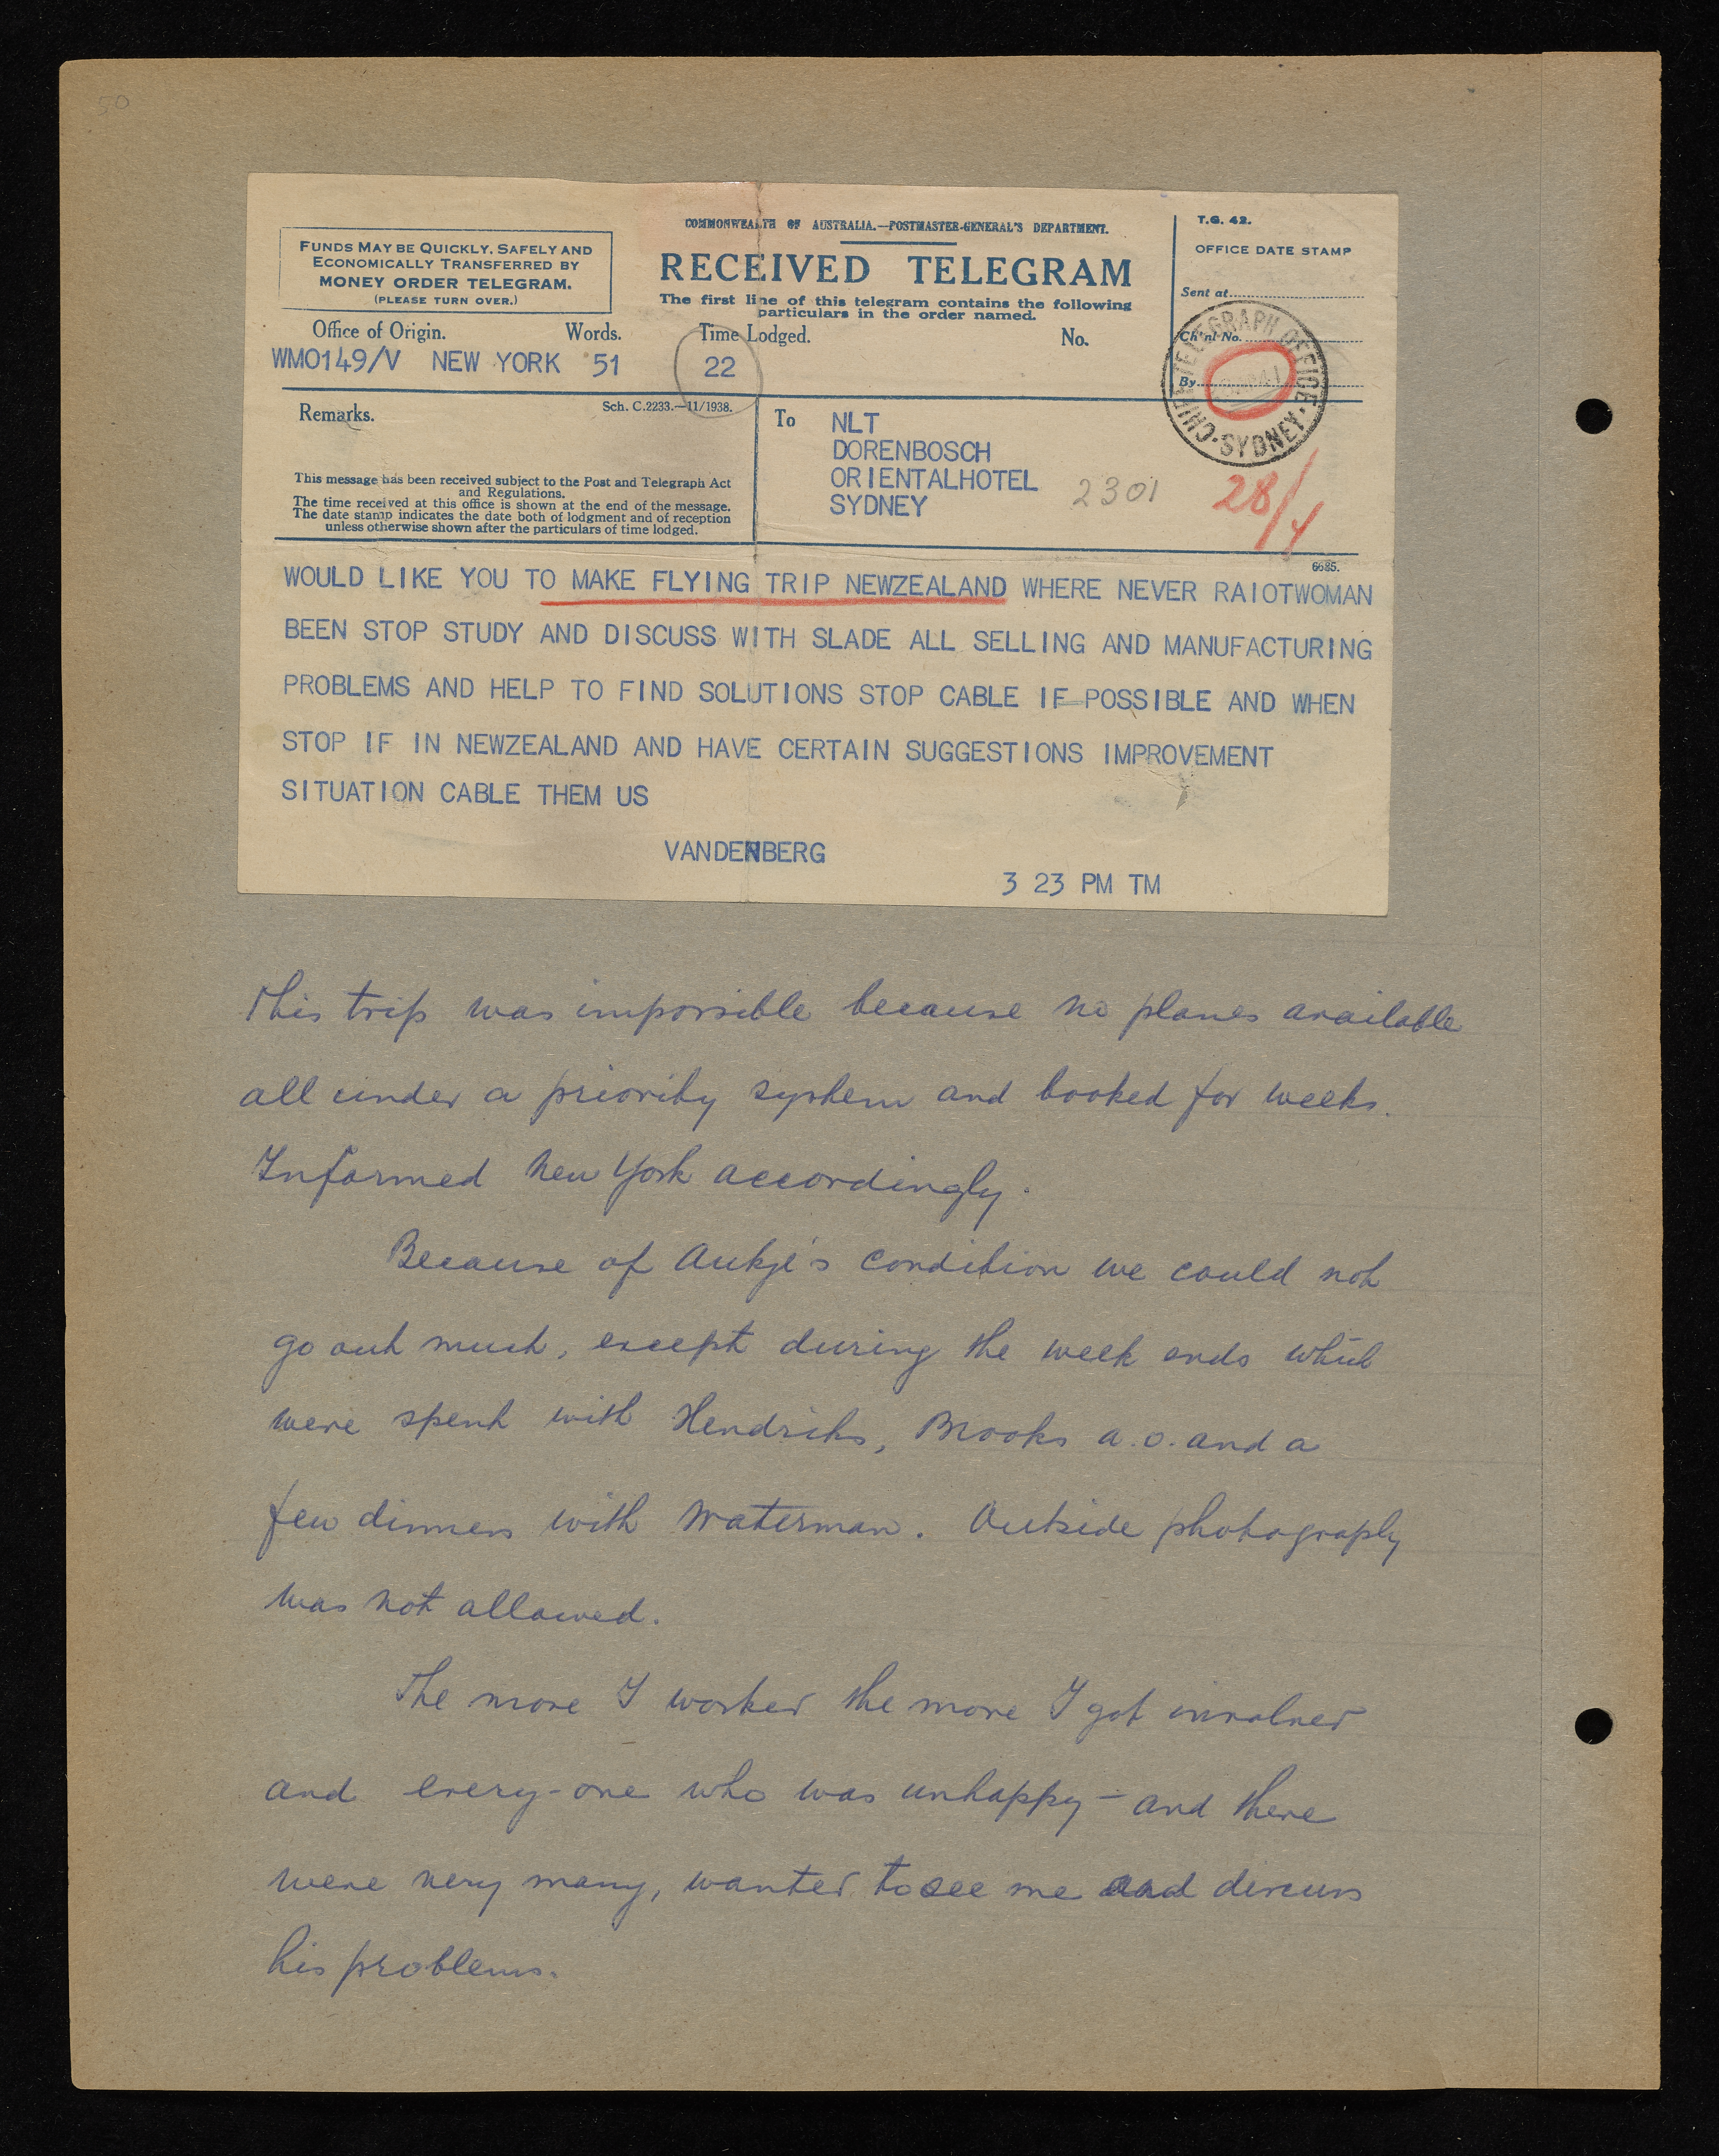 50
COMMONWEALTH OF AUSTRALIA.—POSTMASTER-GENERAL'S DEPARTMENT.
RECEIVED TELEGRAM
The first line of this telegram contains the following
particulars in the order named.
FUNDS MAY BE QUICKLY, SAFELY AND
ECONOMICALLY TRANSFERRED BY
MONEY ORDER TELEGRAM.
(PLEASE TURN OVER.)
T.G. 42.
OFFICE DATE STAMP
Sent at
Ch'nl No.
By
CHIEF TELEGRAPH OFFICE · SYDNEY ·
28/4
Office of Origin. Words. Time Lodged. No.
WM0149/V NEW YORK 51 22
Remarks.
Sch. C.2233.—11/1938.
This message has been received subject to the Post and Telegraph Act
and Regulations.
The time received at this office is shown at the end of the message.
The date stamp indicates the date both of lodgment and of reception
unless otherwise shown after the particulars of time lodged.
To NLT
DORENBOSCH
ORIENTALHOTEL
SYDNEY
2301
6685.
WOULD LIKE YOU TO MAKE FLYING TRIP NEWZEALAND WHERE NEVER RAIOTWOMAN
BEEN STOP STUDY AND DISCUSS WITH SLADE ALL SELLING AND MANUFACTURING
PROBLEMS AND HELP TO FIND SOLUTIONS STOP CABLE IF POSSIBLE AND WHEN
STOP IF IN NEWZEALAND AND HAVE CERTAIN SUGGESTIONS IMPROVEMENT
SITUATION CABLE THEM US
VANDENBERG
3 23 PM TM
This trip was impossible because no planes available
all under a priority system and booked for weeks.
Informed New York accordingly.
Because of Aukje's condition we could not
go out much, except during the week ends which
were spent with Hendriks, Brooks a.o. and a
few dinners with Waterman. Outside photography
was not allowed.
The more I worked the more I got involved
and every-one who was unhappy – and there
were very many, wanted to see me and discuss
his problems.